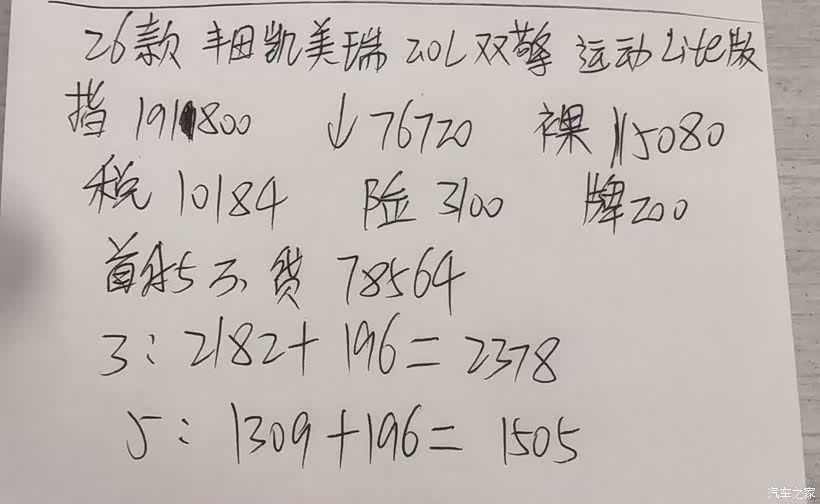 26款 丰田凯美瑞 2.0L双擎 运动Lite版
指 191800 ↓76720 裸 115080
税 10184 险 3100 牌200
首付5万 贷 78564
3: 2182+196=2378
5: 1309+196=1505
汽车之家